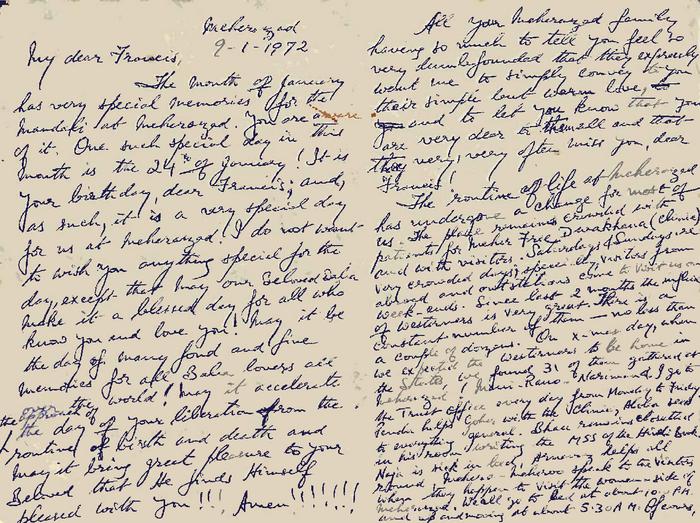 Meherazad
9-1-1972
My dear Francis,
The month of January
has very special memories for the
Mandali at Meherazad. You are aware
of it. One such special day in this
month is the 24th of January! It is
your birthday, dear Francis; and,
as such, it is a very special day
for us at Meherazad! I do not want
to wish you anything special for the
day, except that may our Beloved Baba
make it a blessed day for all who
know you and love you! May it be
the day of many fond and fine
memories for all Baba lovers all
the world! May it accelerate
the day of your liberation from the
routine of birth and death and
may it bring great pleasure to your
Beloved that He finds Himself
pleased with you!!! Amen!!!!!!!
All your Meherazad family
having so much to tell you feel so
very dumbfounded that they expressly
want me to simply convey to you
their simple but warm love,
and to let you know that you
are very dear to them all and that
they very, very often miss you, dear
Francis!
The routine of life at Meherazad
has undergone a change for most of
us. The place remains crowded with
patients for Meher Free Dwakhana (Clinic)
and with visitors. Saturdays & Sundays are
very crowded days, specially visitors from
abroad and outstations come to visit us on
week-ends. Since last 2 months the influx
of westerners is very great. There is a
constant number of them — no less than
a couple of dozens. On x-mas day, when
we expected the westerners to be home in
the States, we found 31 of them gathered at
Meherazad! Mani-Rano- Nariman & I go to
the Trust Office every day from Monday to Friday
helps Goher with the Clinic,
to everything general. Bhau remains closetted
in his room, writing the MSS of the Hindi Book,
is sick in helps all
round. Mehera - Meheroo speak to the visitors
when they happen to visit the women-side of
Meherazad. We all go to bed at about 10 P.M.
and up and moving at about 5:30 A.M. Of course,